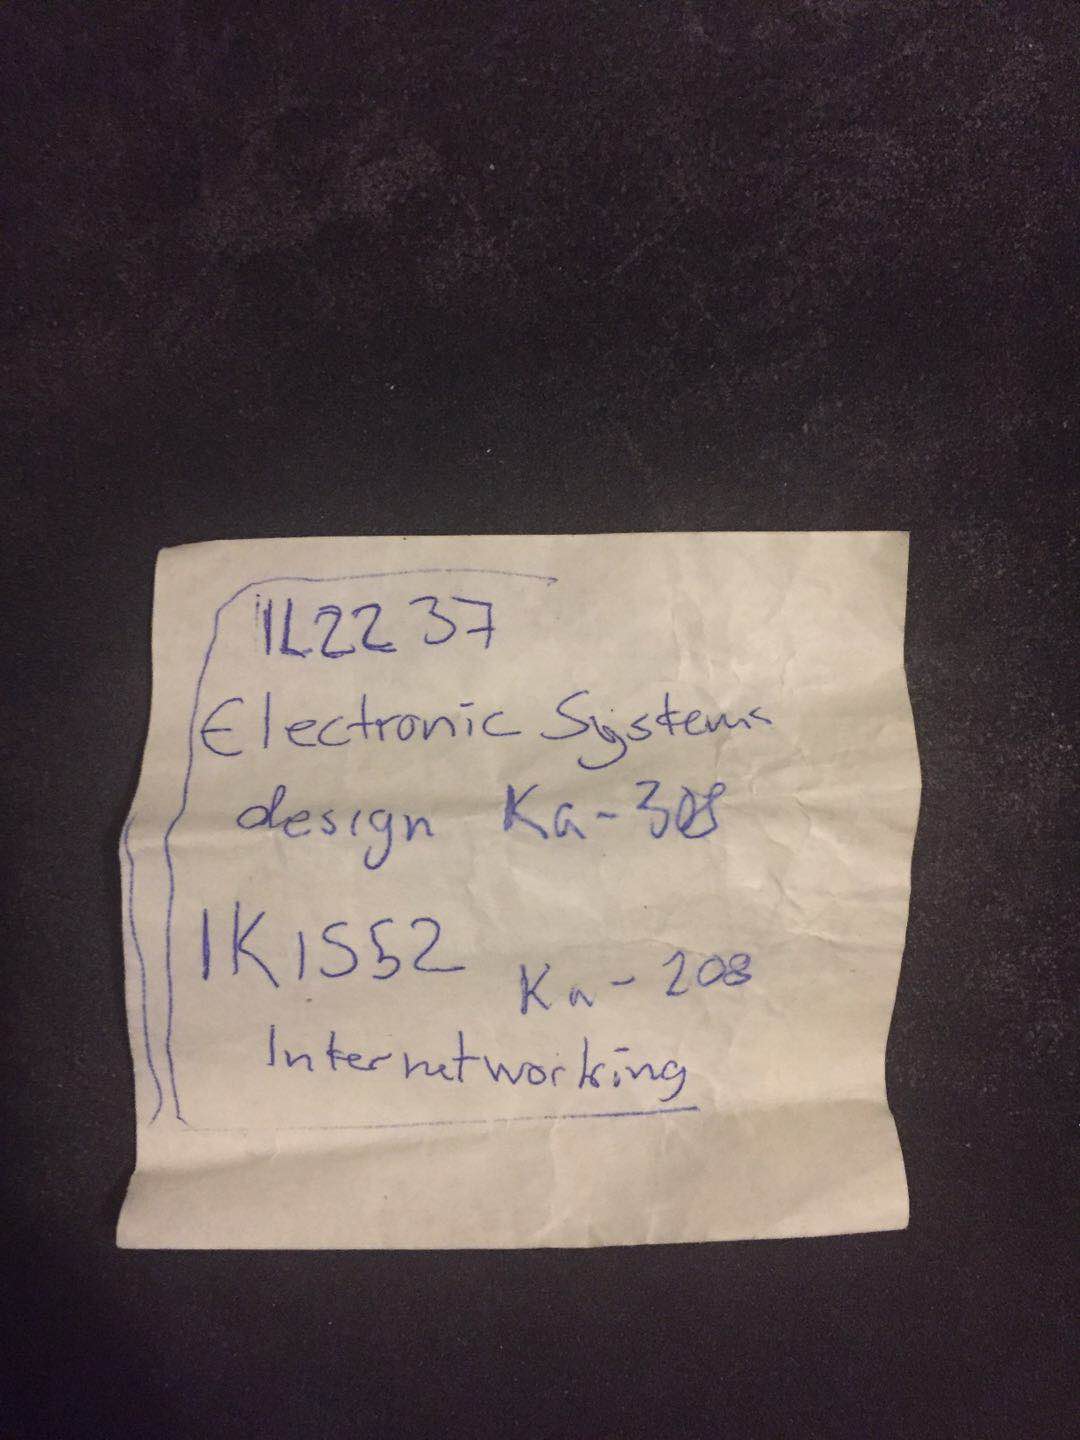 IL2237
Electronic Systems
design Ka-308
IK1552
Ka-208
Internetworking